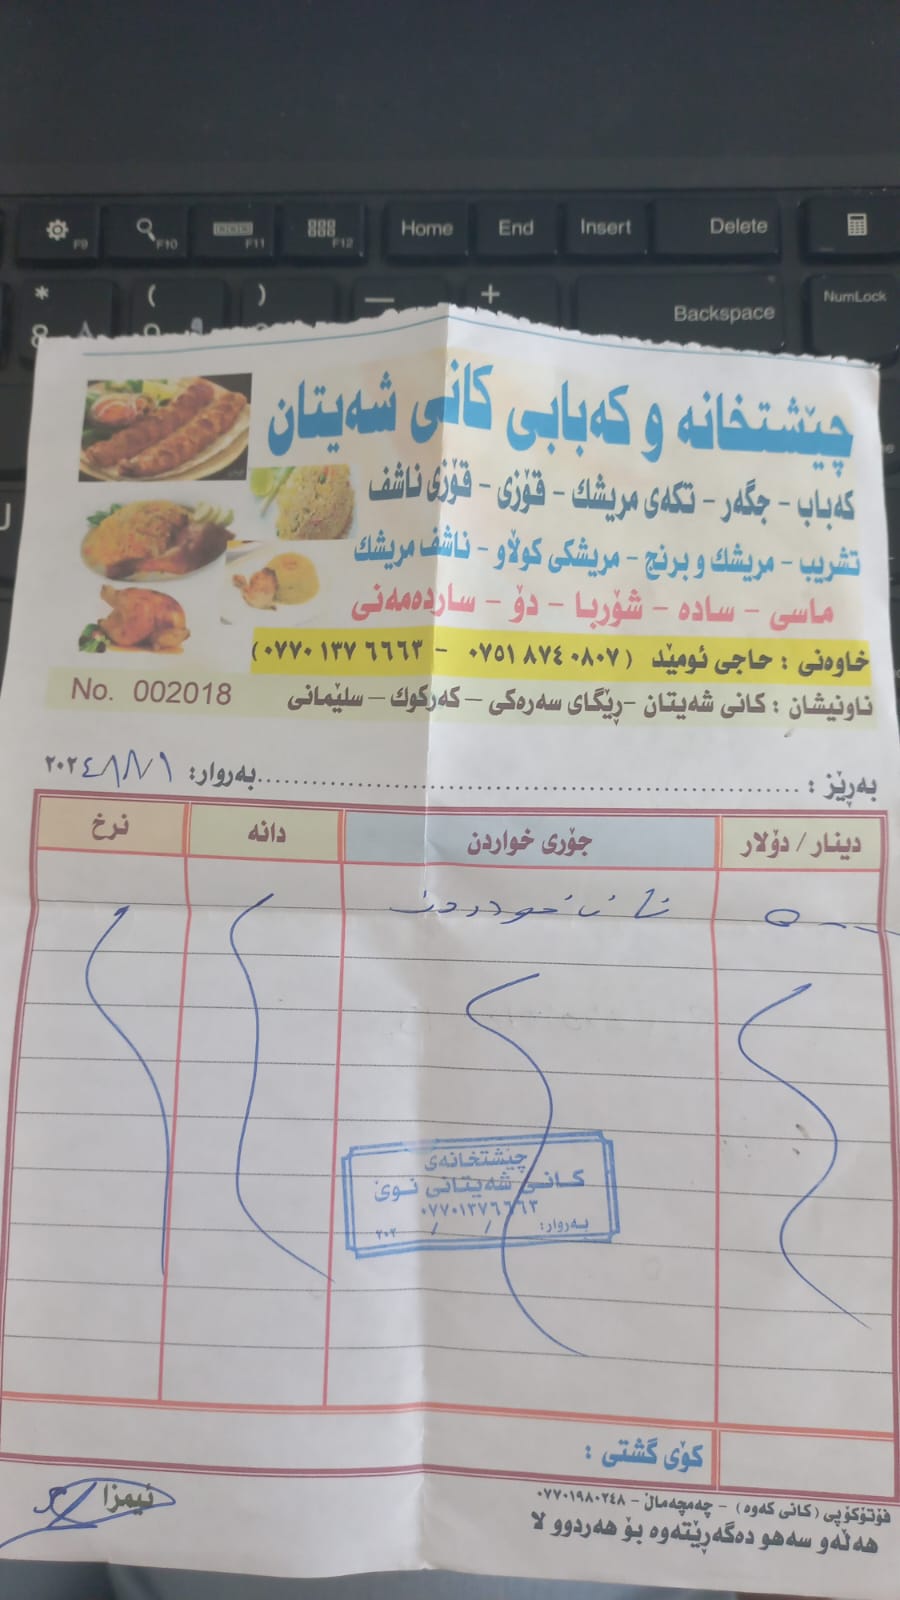 F9
F10
F11
F12
Home
End
Insert
Delete
*
(
)
—
+
8
Backspace
NumLock
چێشتخانە و کەبابی کانی شەیتان
کەباب - جگەر - تکەی مریشك - قۆزی - قۆزی ناشف
تشریب - مریشك و برنج - مریشکی کوڵاو - ناشف مریشك
ماسی - سادە - شۆربا - دۆ - ساردەمەنی
خاوەنی : حاجی ئومێد ( ٠٧٥١ ٨٧٤ ٠٨٠٧ - ٠٧٧٠ ١٣٧ ٦٦٦٣ )
ناونیشان : کانی شەیتان -ڕێگای سەرەکی - کەرکوك - سلێمانی
No. 002018
بەڕێز : ........................ بەروار: ١ / ٨ / ٢٠٢٤
دینار / دۆلار جۆری خواردن دانە نرخ
٥٠٠٠ نانخواردن
چێشتخانەی
کانی شەیتانی نوێ
٠٧٧٠١٣٧٦٦٦٣
بەروار: / / ٢٠٢
کۆی گشتی :
ئیمزا
فۆتۆکۆپی (کانی کەوە) - چەمچەماڵ - ٠٧٧٠١٩٨٠٢٤٨
هەڵەو سەهو دەگەڕێتەوە بۆ هەردوو لا